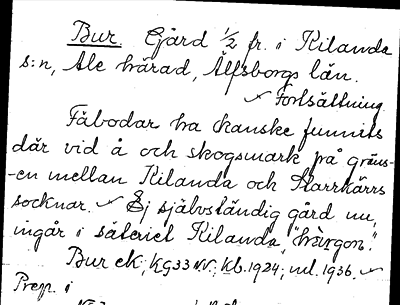 Bur. Gård 1/2 fr. i Kilanda
s:n, Ale härad, Älfsborgs län.
Fortsättning.
Fäbodar ha kanske funnits
där vid å och skogsmark på gräns-
-en mellan Kilanda och Starrkärrs
socknar. Ej självständig gård nu,
ingår i säteriet Kilanda, "härgon".
Bur ek; KG33NV; kb. 1924; ml. 1936.
Prep. i